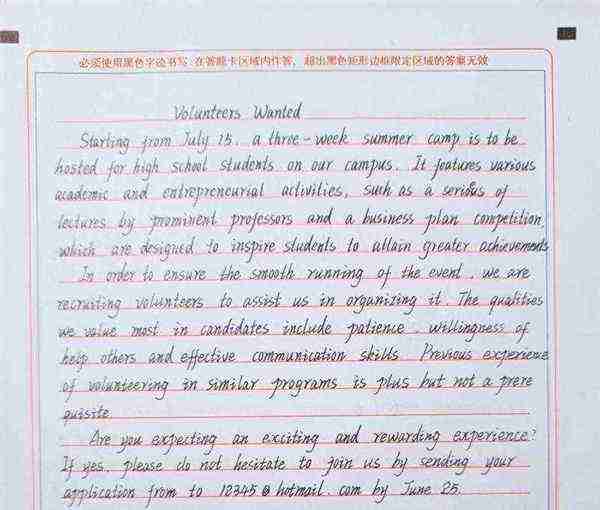 必须使用黑色字迹书写,在答题卡区域内作答,超出黑色矩形边框限定区域的答案无效
Volunteers Wanted
Starting from July 15, a three-week summer camp is to be
hosted for high school students on our campus. It features various
academic and entrepreneurial activities, such as a serious of
lectures by prominent professors and a business plan competition,
which are designed to inspire students to attain greater achievements
In order to ensure the smooth running of the event, we are
recruiting volunteers to assist us in organizing it. The qualities
we value most in candidates include patience, willingness of
help others and effective communication skills. Previous experience
of volunteering in similar programs is plus but not a prere
quisite
Are you expecting an exciting and rewarding experience?
If yes, please do not hesitate to join us by sending your
application from to 12345@hotmail.com by June 25.